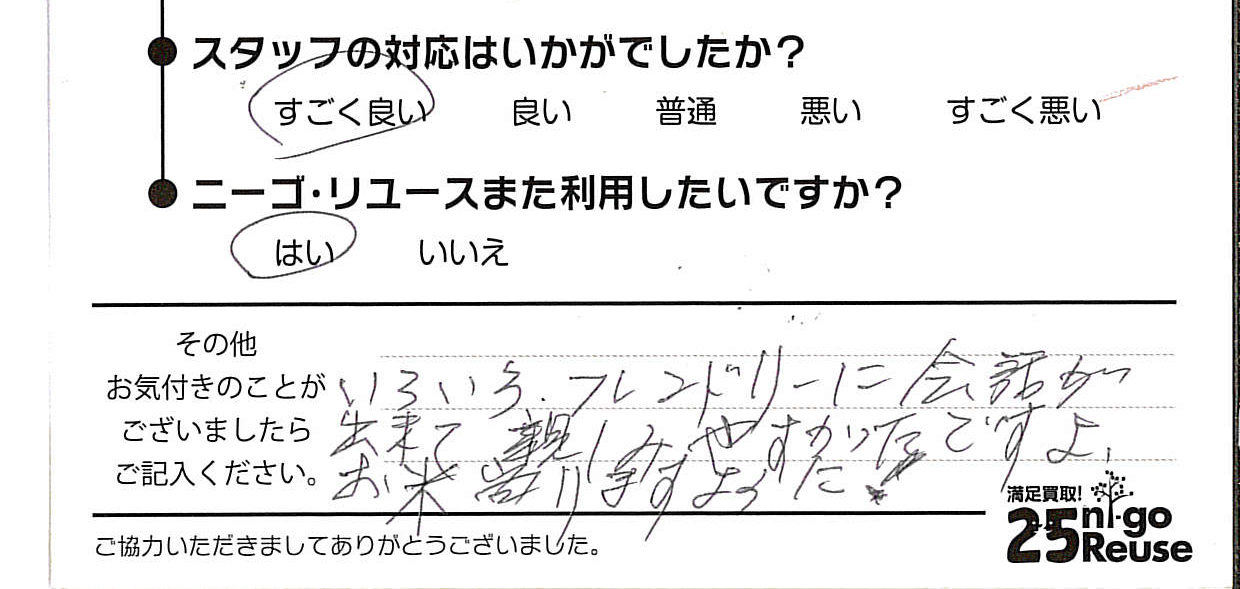 スタッフの対応はいかがでしたか?
すごく良い 良い 普通 悪い すごく悪い
ニーゴ・リユースまた利用したいですか?
はい いいえ
その他
お気付きのことが
ございましたら
ご記入ください。
いろいろ、フレンドリーに会話が
出来て親しみやすかったですよ、
お米 ますように!
満足買取!
25 ni-go
Reuse
ご協力いただきましてありがとうございました。